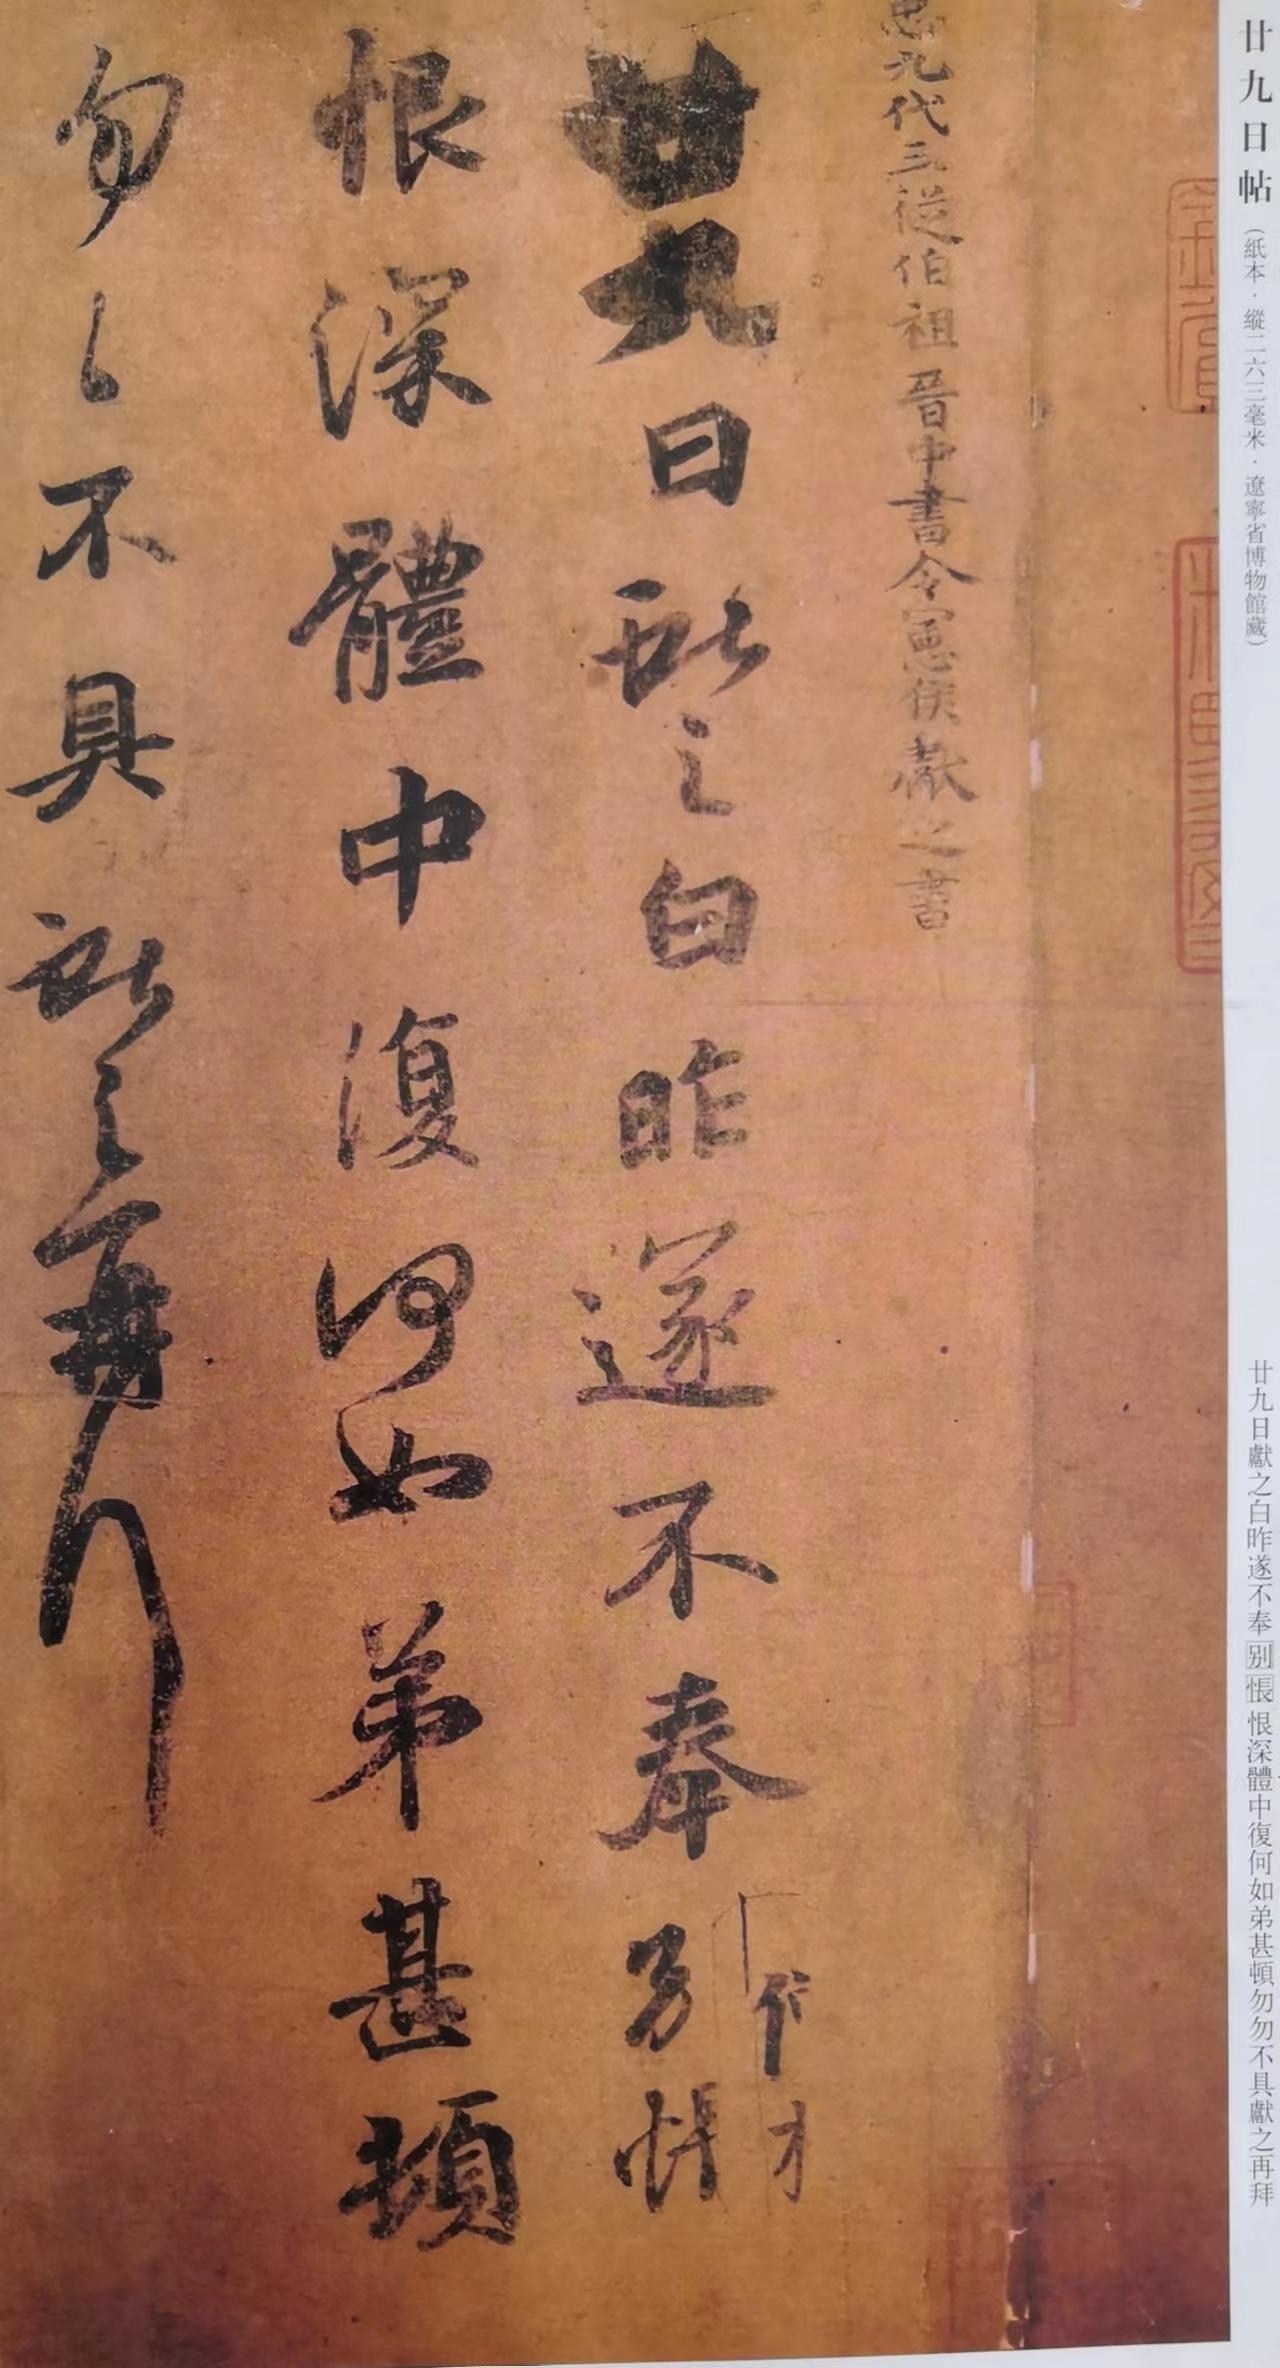 廿九日帖
(紙本·縱二六三毫米·遼寧省博物館藏)
廿九日獻之白昨遂不奉别悵恨深體中復何如弟甚頓勿勿不具獻之再拜
九代三從伯祖晉中書令憲侯獻之書
廿九日獻之白昨遂不奉别悵
恨深體中復何如弟甚頓
勿勿不具獻之再拜